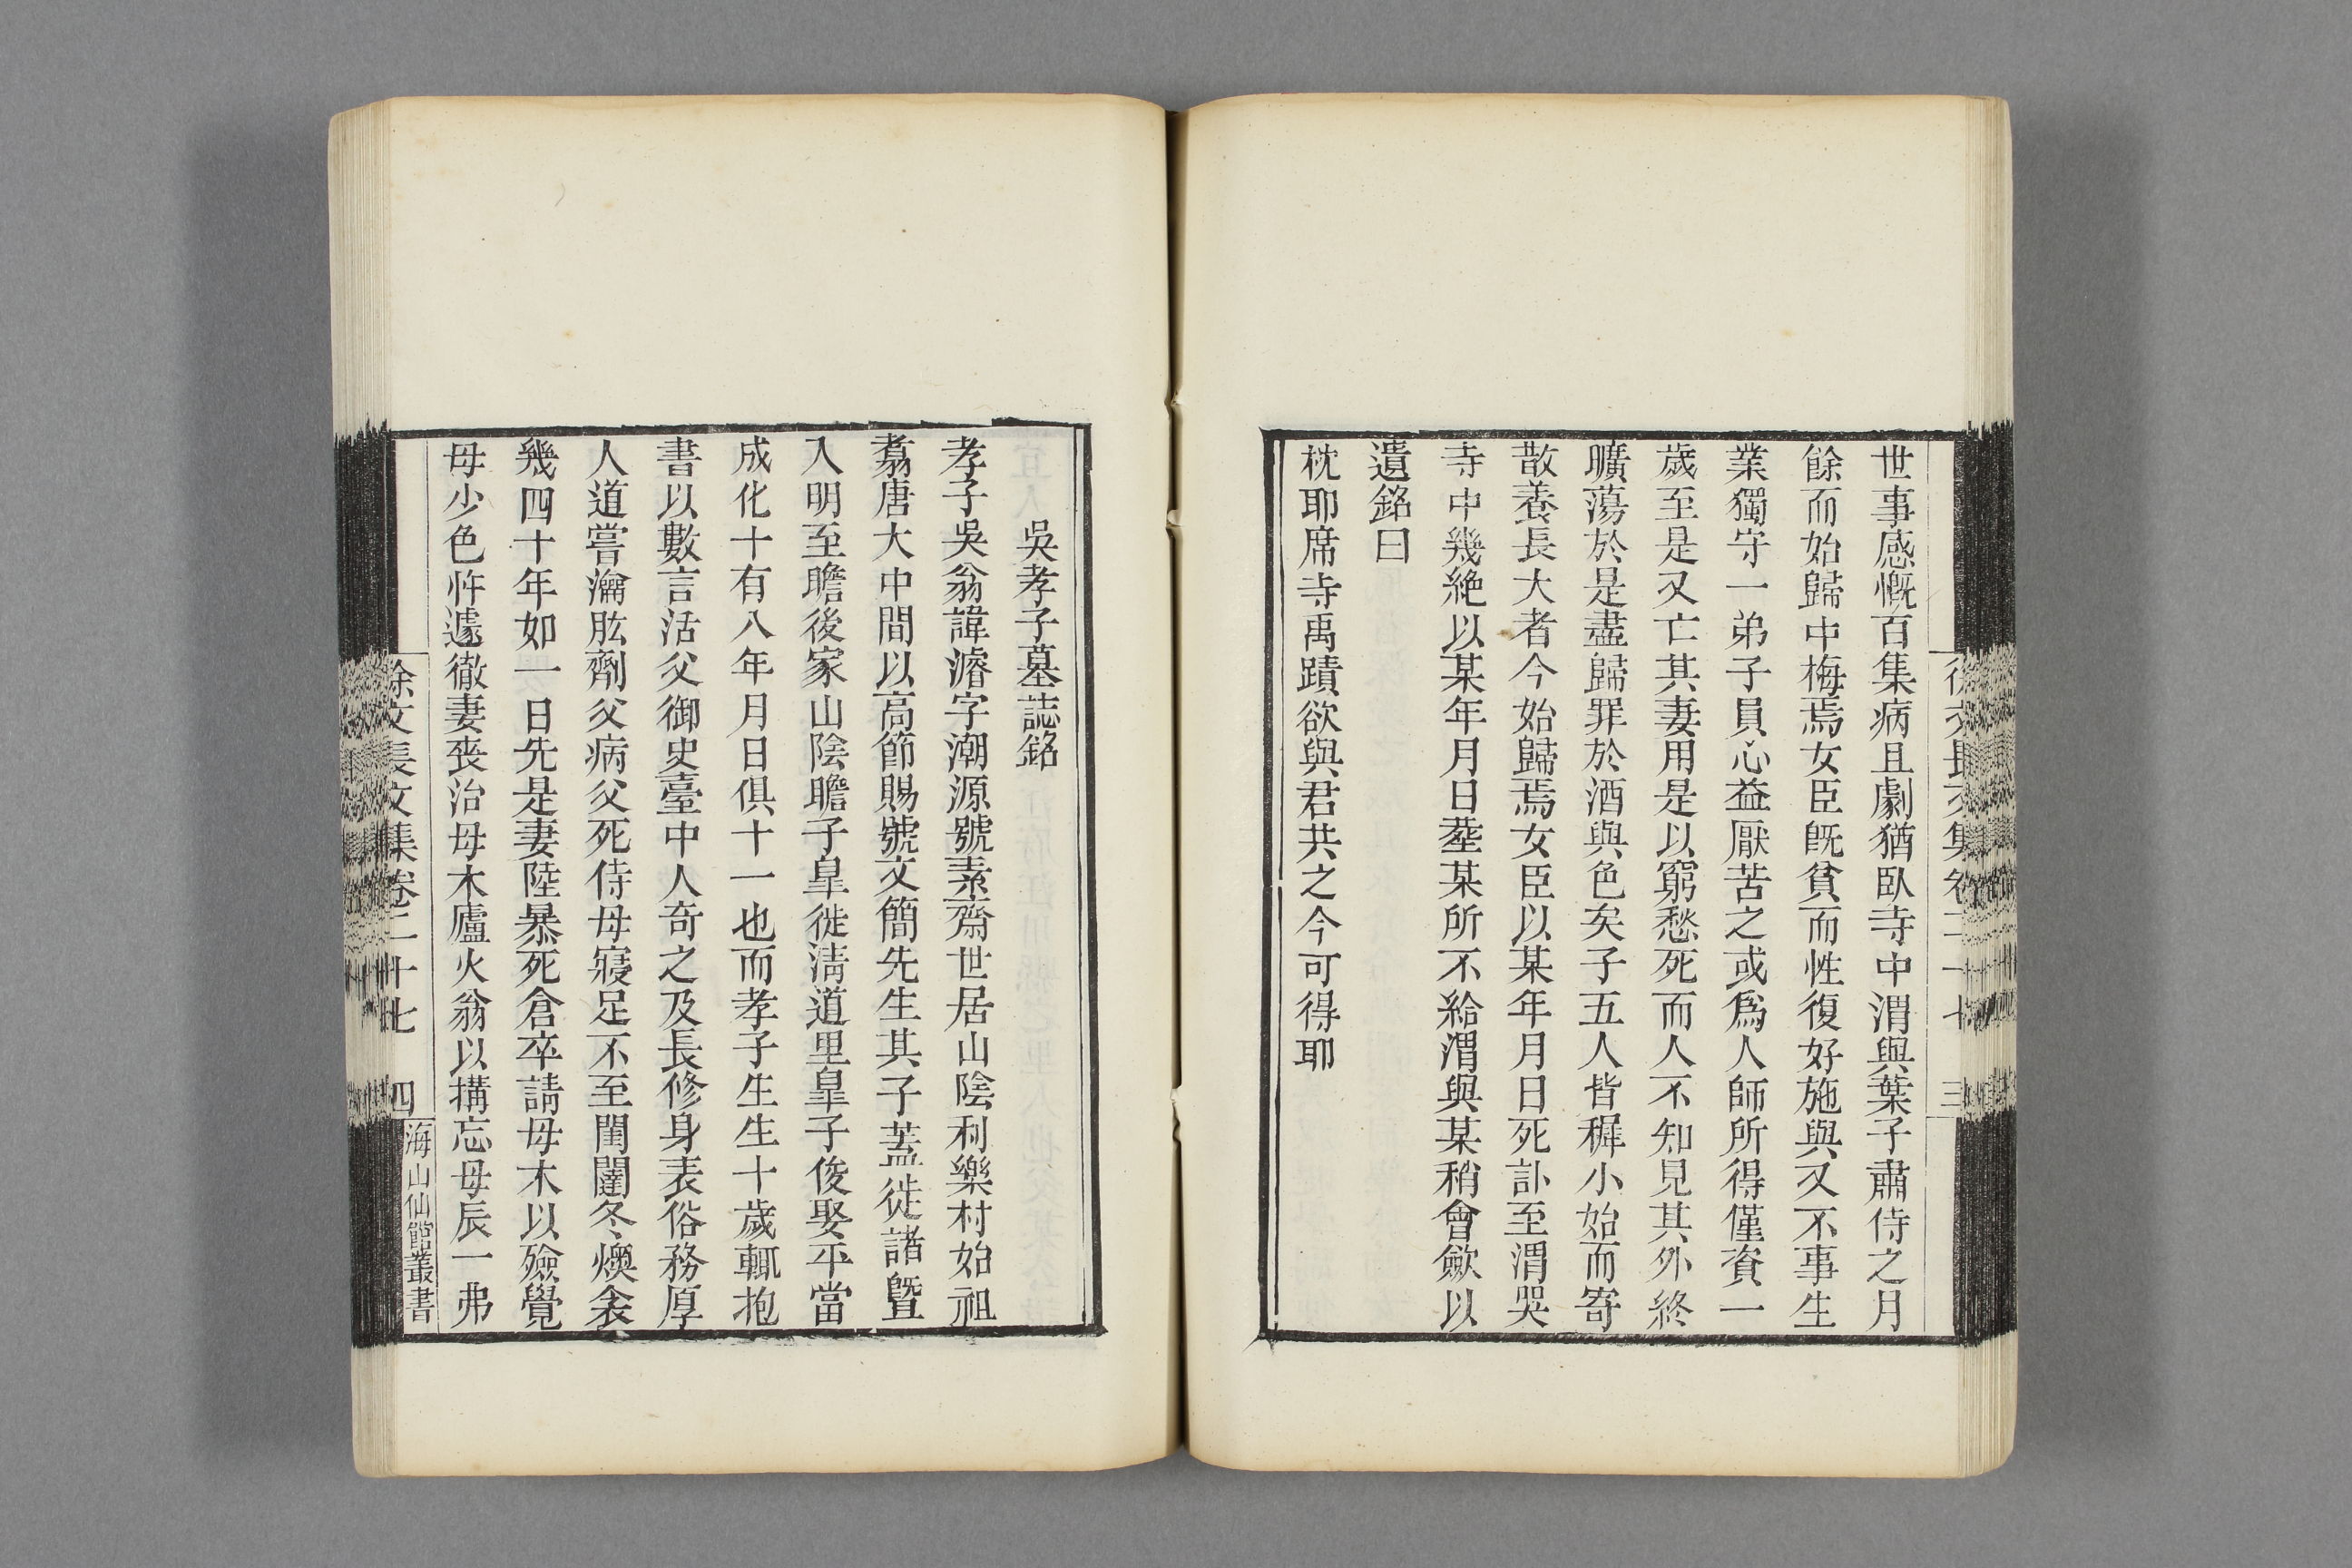 世事感慨百集病且劇猶臥寺中渭與葉子肅侍之月
餘而始歸中梅焉女臣旣貧而性復好施與又不事生
業獨守一弟子員心益厭苦之或爲人師所得僅資一
歲至是又亡其妻用是以窮愁死而人不知見其外終
曠蕩於是盡歸罪於酒與色矣子五人皆穉小始而寄
散養長大者今始歸焉女臣以某年月日死訃至渭哭
寺中幾絶以某年月日塟某所不給渭與某稍會歛以
遺銘曰
枕耶席寺禹蹟欲與君共之今可得耶
吳孝子墓誌銘
孝子吳翁諱濬字潮源號素齋世居山陰利樂村始祖
翥唐大中間以高節賜號文簡先生其子蓋徙諸曁
入明至瞻後家山陰瞻子皐徙淸道里皐子俊娶平當
成化十有八年月日俱十一也而孝子生生十歲輒抱
書以數言活父御史臺中人奇之及長修身表俗務厚
人道嘗瀹肱劑父病父死侍母寢足不至閨闥冬燠衾
幾四十年如一日先是妻陸暴死倉卒請母木以殮覺
母少色忤遽徹妻喪治母木廬火翁以搆忘母辰一弗
徐文長文集卷二十七 四
海山仙館叢書